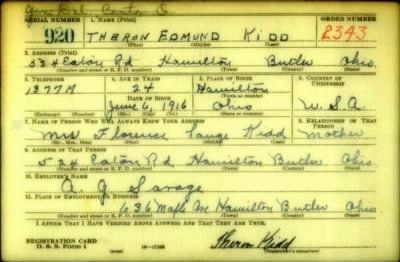 Gen Del. Canton O
SERIAL NUMBER 1. NAME (Print) ORDER NUMBER
920 THERON EDMUND KIDD 2343
(First) (Middle) (Last)
2. ADDRESS (Print)
534 Eaton Rd Hamilton Butler Ohio
(Number and street or R. F. D. number) (Town) (County) (State)
3. TELEPHONE 4. AGE IN YEARS 5. PLACE OF BIRTH 6. COUNTRY OF CITIZENSHIP
1377M 24 Hamilton
DATE OF BIRTH (Town or county)
June 6, 1916 Ohio U.S.A.
(Exchange) (Number) (Mo.) (Day) (Yr.) (State or country)
7. NAME OF PERSON WHO WILL ALWAYS KNOW YOUR ADDRESS 8. RELATIONSHIP OF THAT PERSON
Mrs Florence Lange Kidd Mother
(Mr., Mrs., Miss) (First) (Middle) (Last)
9. ADDRESS OF THAT PERSON
524 Eaton Rd Hamilton Butler Ohio
(Number and street or R. F. D. number) (Town) (County) (State)
10. EMPLOYER'S NAME
A. G. Savage
11. PLACE OF EMPLOYMENT OR BUSINESS
636 Maple Ave Hamilton Butler Ohio
(Number and street or R. F. D. number) (Town) (County) (State)
I AFFIRM THAT I HAVE VERIFIED ABOVE ANSWERS AND THAT THEY ARE TRUE.
REGISTRATION CARD
D. S. S. Form 1 Theron Kidd
(Registrant's signature)